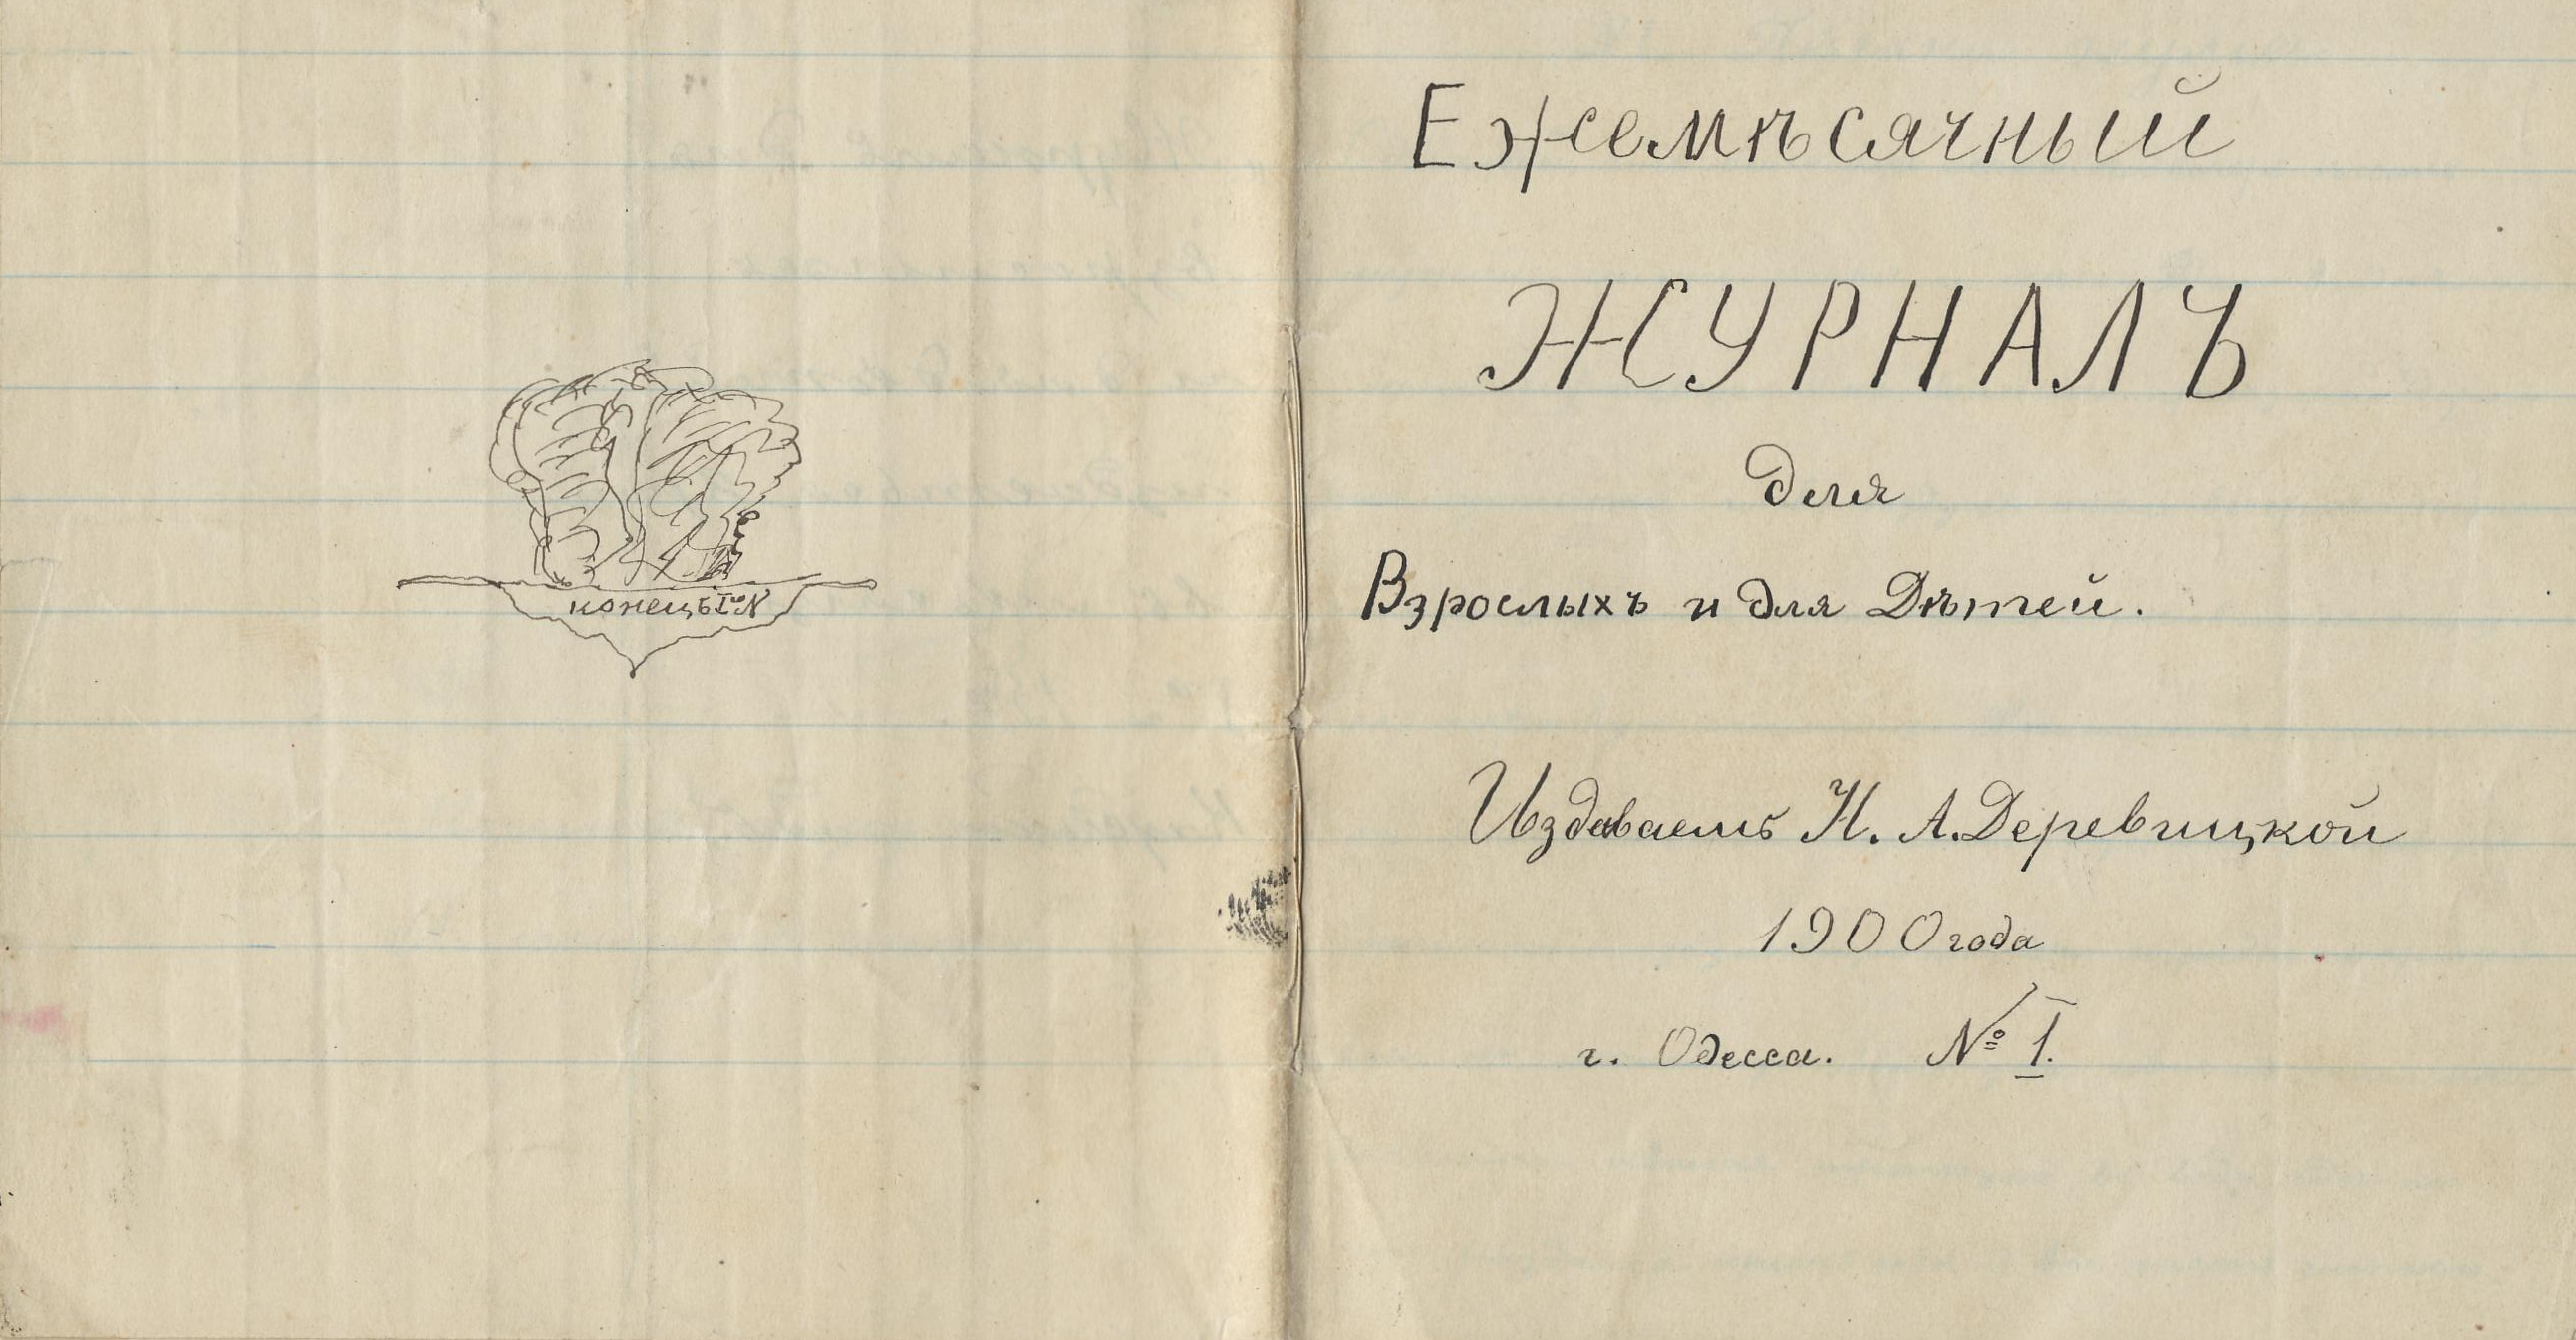 конецъ Iго N
Ежемѣсячный
ЖУРНАЛЪ
для
Взрослыхъ и для Дѣтей.
Издаваемъ Н. А. Деревицкой
1900 года
г. Одесса. № I.